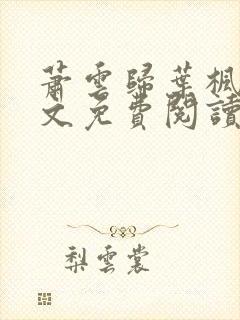 蕭雲歸葉楓
文免費閱讀
梨雲裳